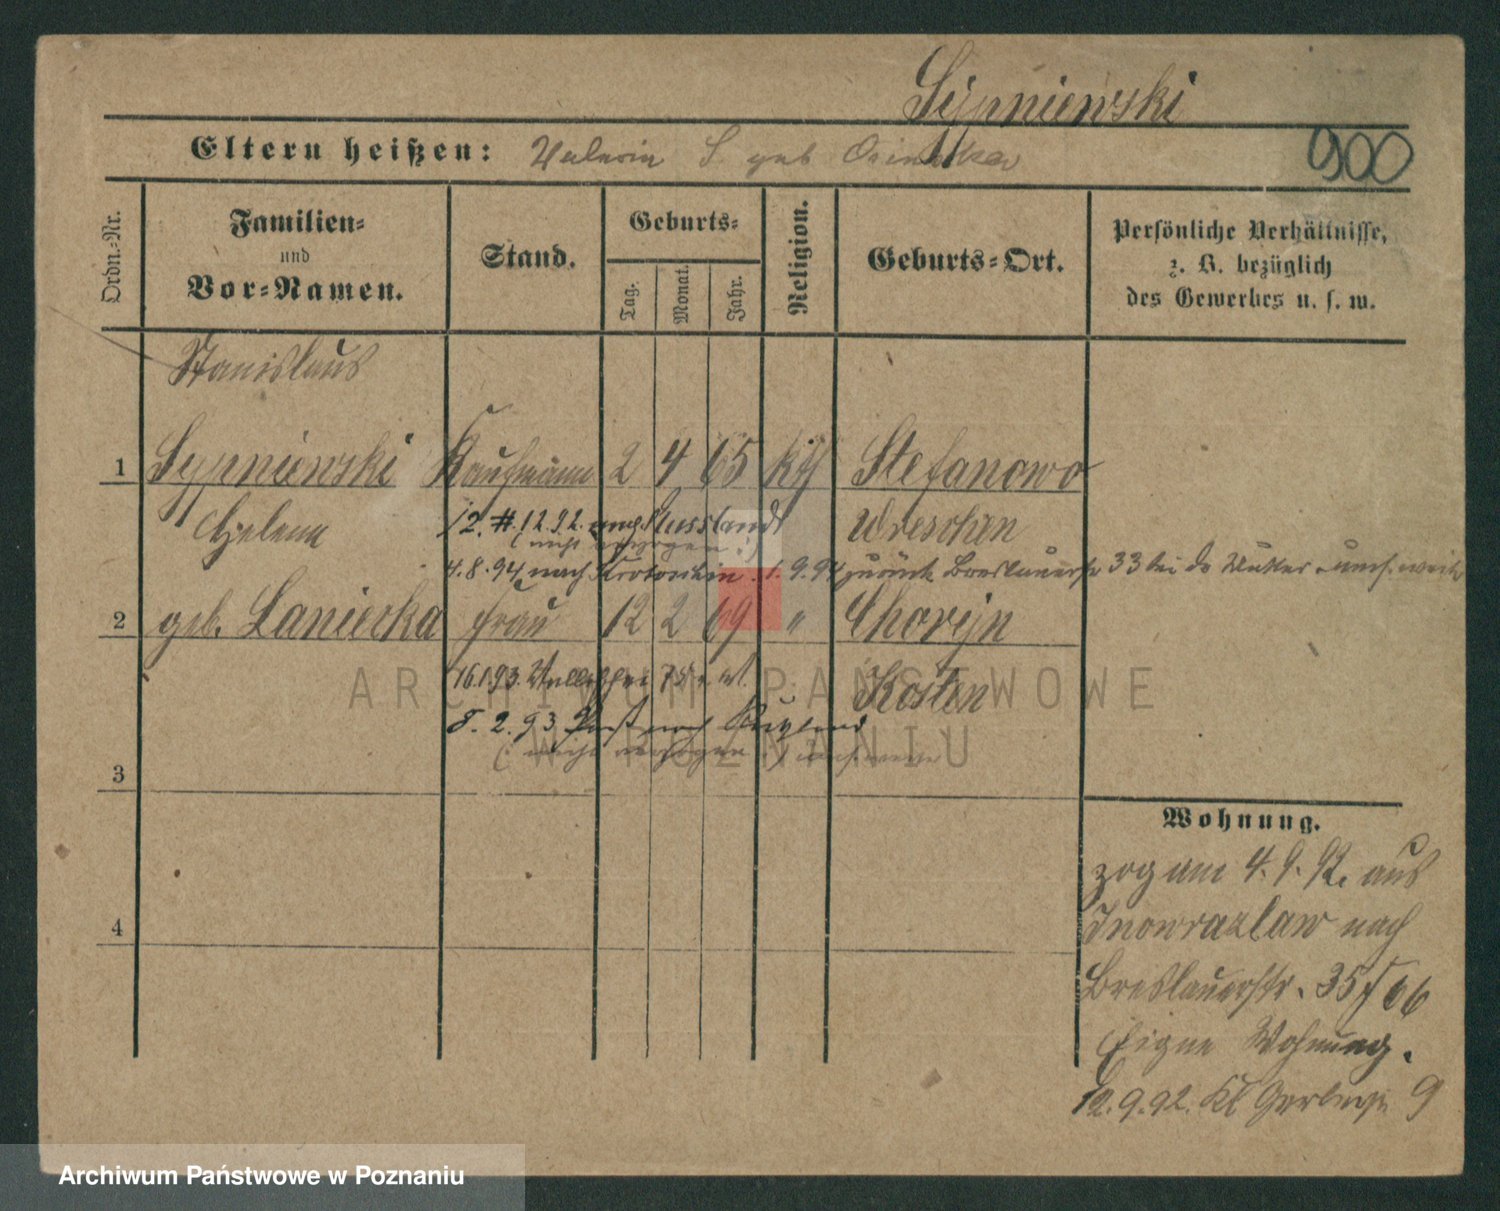 Sypniewski
Eltern heißen: Valerie S. geb
900
Ordn.-Nr.
Familien-
und
Vor-Namen.
Stand.
Geburts-
Tag.
Monat.
Jahr.
Religion.
Geburts-Ort.
Persönliche Verhältnisse,
z. B. bezüglich
des Gewerbes u. s. w.
Stanislaus
1 Sypniewski Kaufmann 2 4 65 kth Stefanowo
Helena
12. 12.92. nach Russland
Wreschen
(nicht verzogen.)
4.8.94 nach Krotoschin. 1.9.94 zurück Breslauerstr 33 bei d. Mutter
2 geb. Laniecka Frau 12 2 69 " Choryn
16.1.93. 75.
Kosten
8.2.93 Paß nach Rußland
(nicht verzogen.)
3
4
Wohnung.
zog am 4.9.92. aus
Inowrazlaw nach
Breslauerstr. 35
Eigne Wohnung.
12.9.92. Kl Gerberstr 9
ARCHIWUM PAŃSTWOWE
W POZNANIU
Archiwum Państwowe w Poznaniu